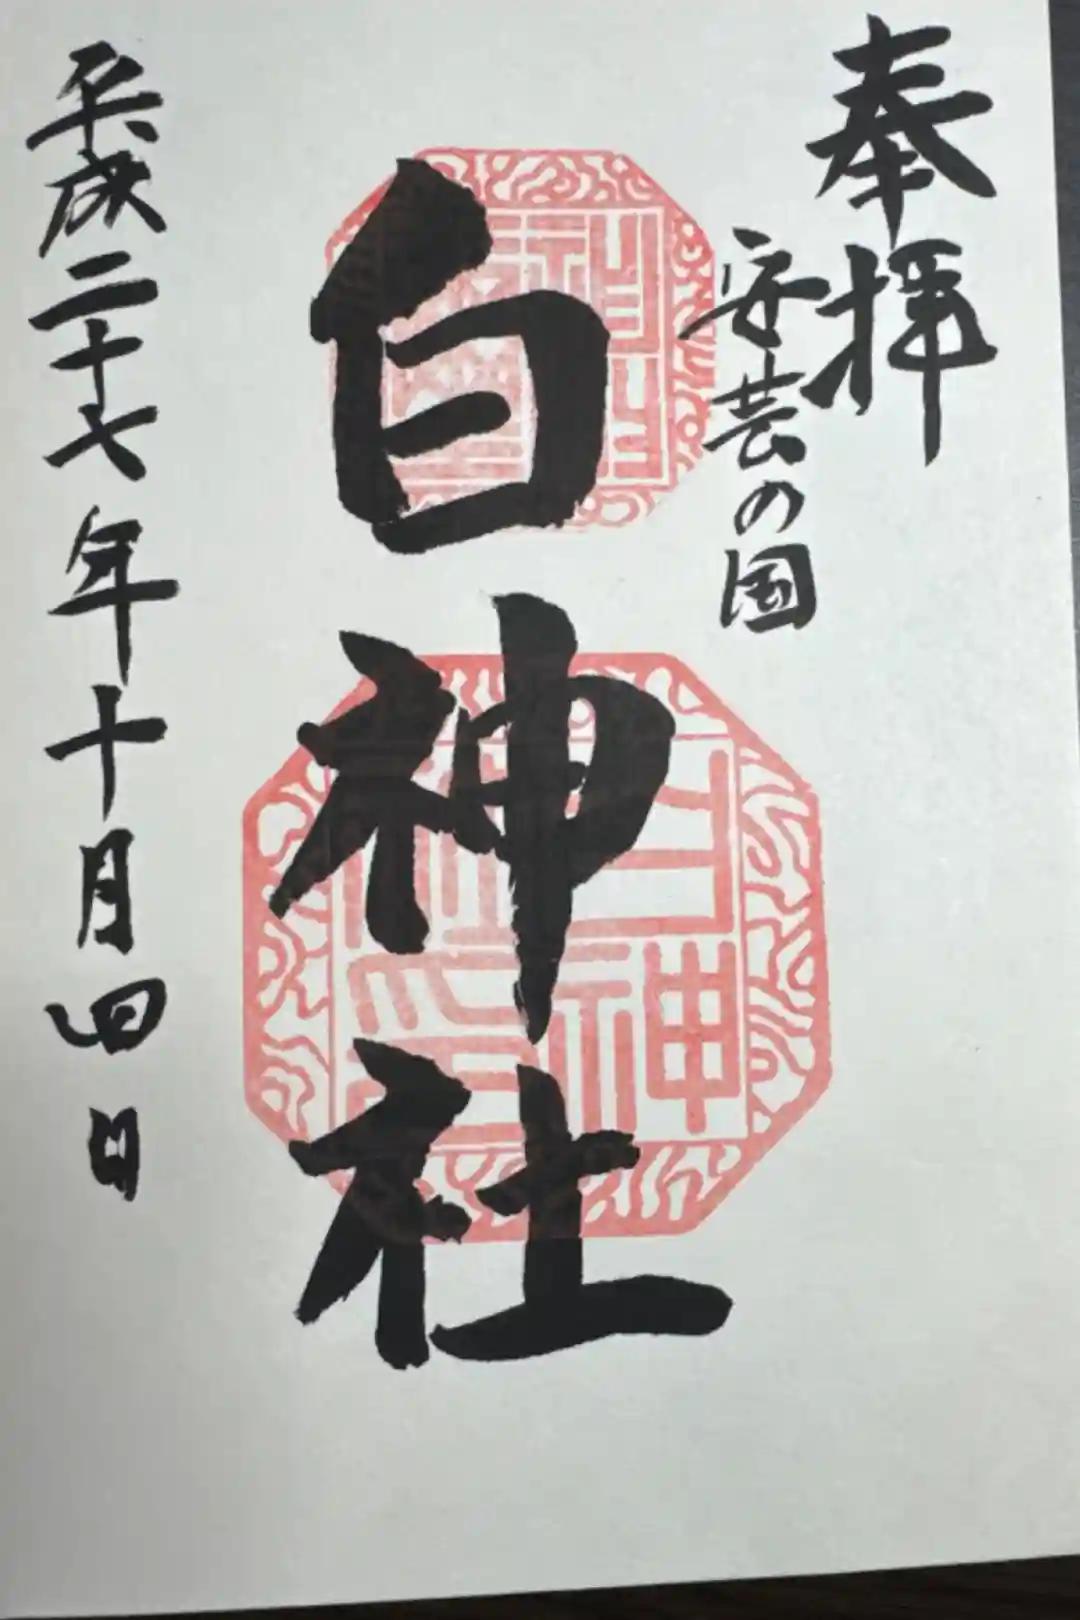 奉拝
安芸の国
白神社
平成二十七年十月四日